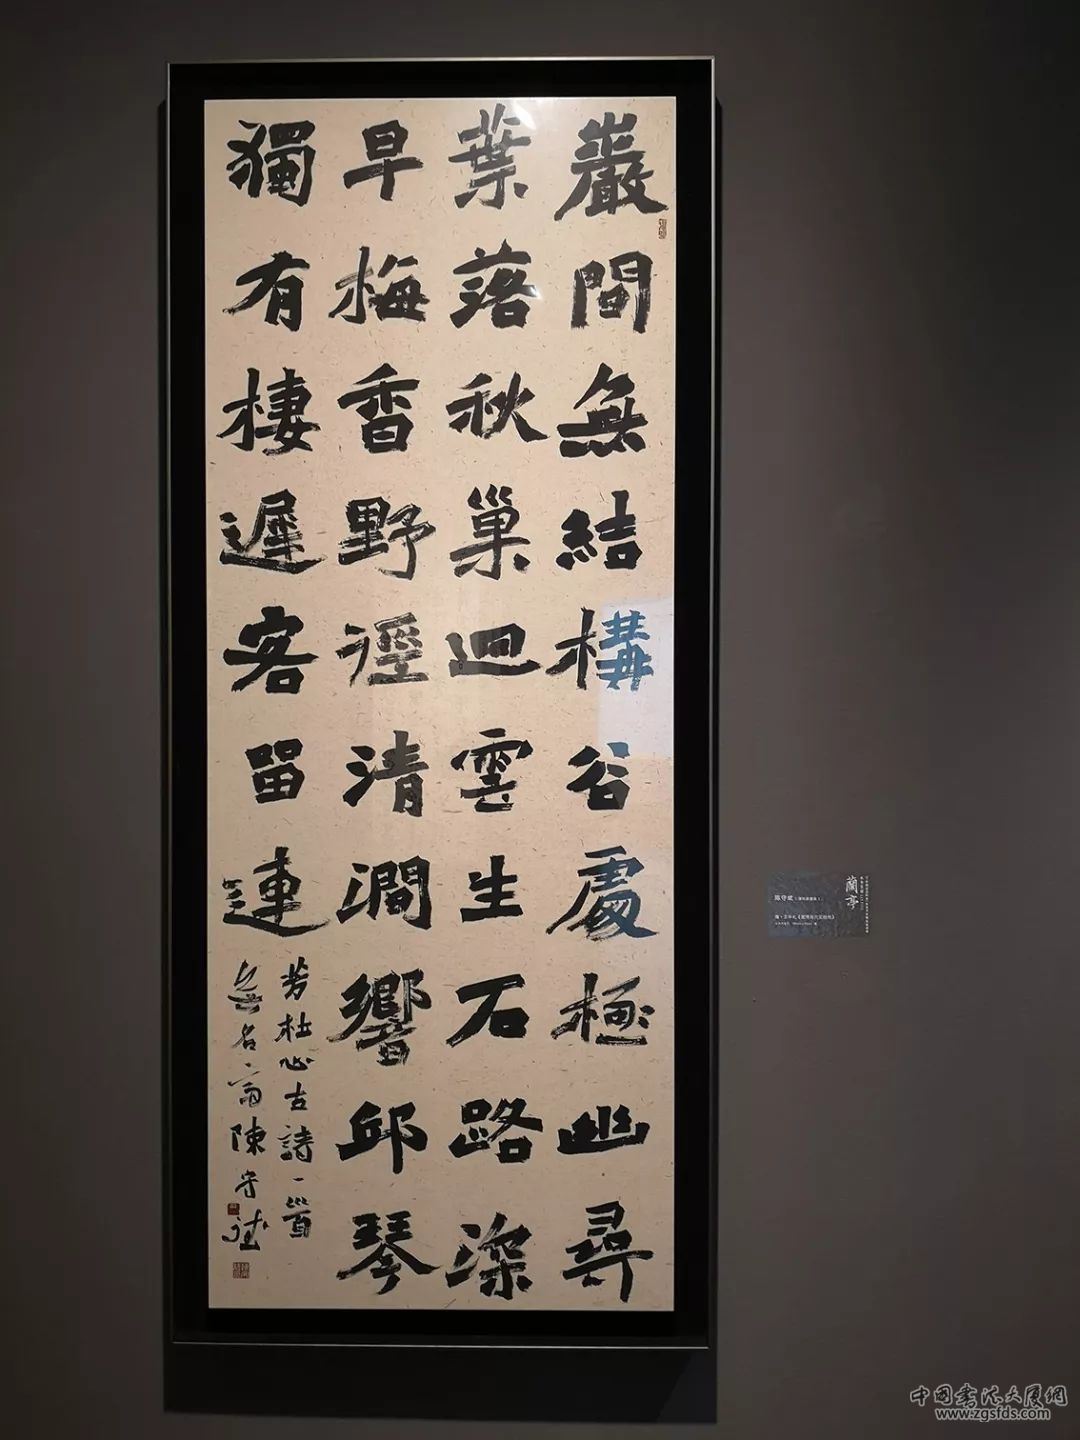 巖間無結構谷處極幽尋
葉落秋巢迥雲生石路深
早梅香野徑清澗響邱琴
獨有棲遲客留連
芳杜心古詩一首
無名齋陳守斌
蘭亭
中國書法大廈網
www.zgsfds.com